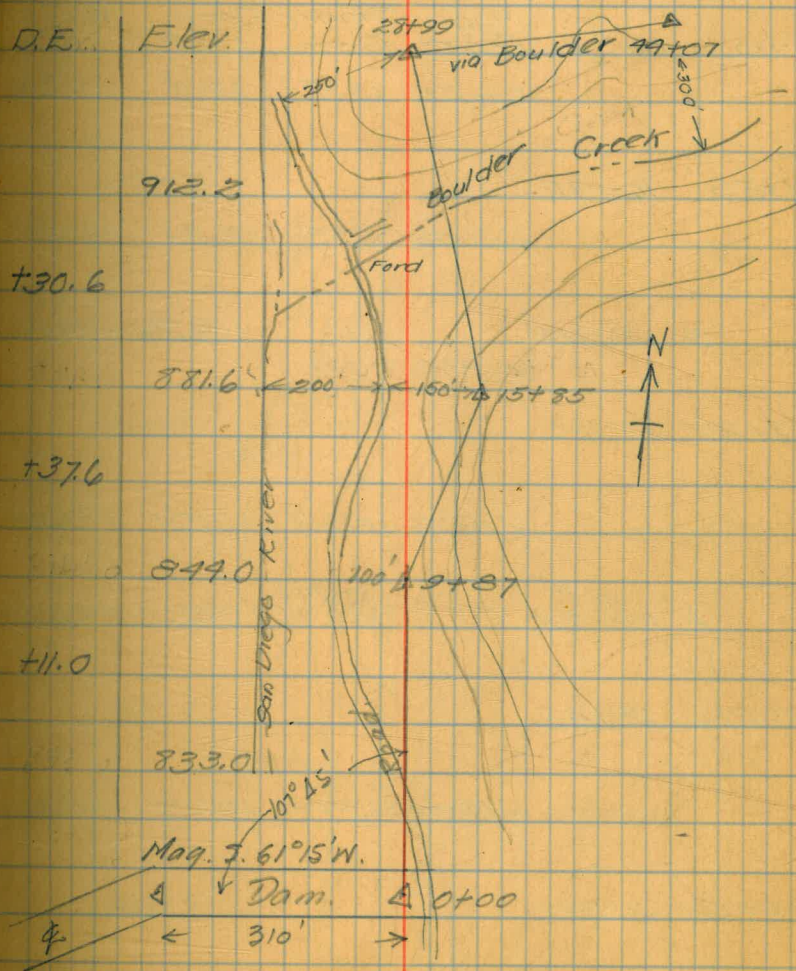 D.E. Elev.
28+99
via Boulder 44+07
250'
300'
Boulder Creek
912.2
Ford
+30.6
N
881.6 200' 150' 15+85
+37.6
San Diego River
844.0 100' 9+87
+11.0
Road
833.0
107° 45'
Mag. S. 61°15'W.
Dam. 0+00
310'